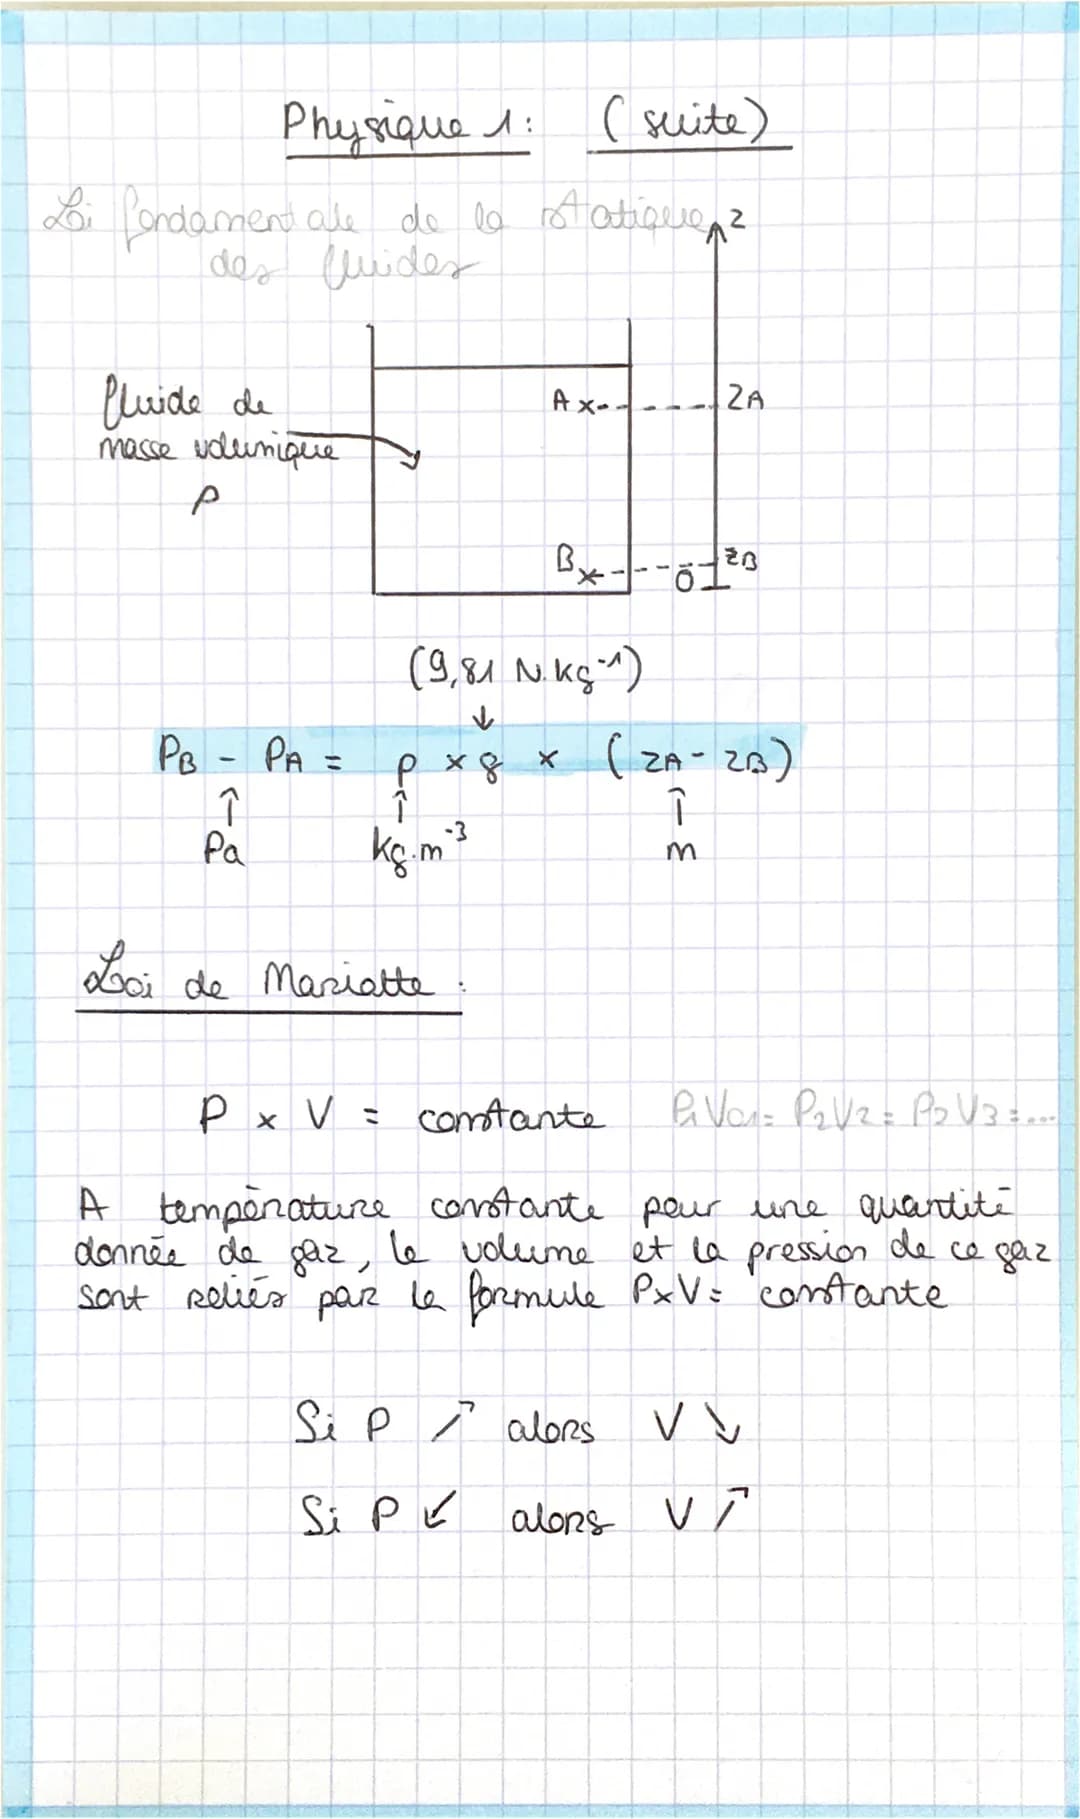 Physique 1: (suite)
Loi fondamentale de la statique
des fluides
z
fluide de
masse volumique
ρ
A x
zA
B x
O
zB
(9,81 N.kg⁻¹)
↓
PB - PA = ρ × g × (zA - zB)
↑ ↑ ↑
Pa kg.m⁻³ m
Loi de Mariotte :
P × V = constante P1V1 = P2V2 = P3V3 = ...
A température constante pour une quantité
donnée de gaz, le volume et la pression de ce gaz
sont reliés par la formule P×V= constante
Si P ↗ alors V ↘
Si P ↙ alors V ↗